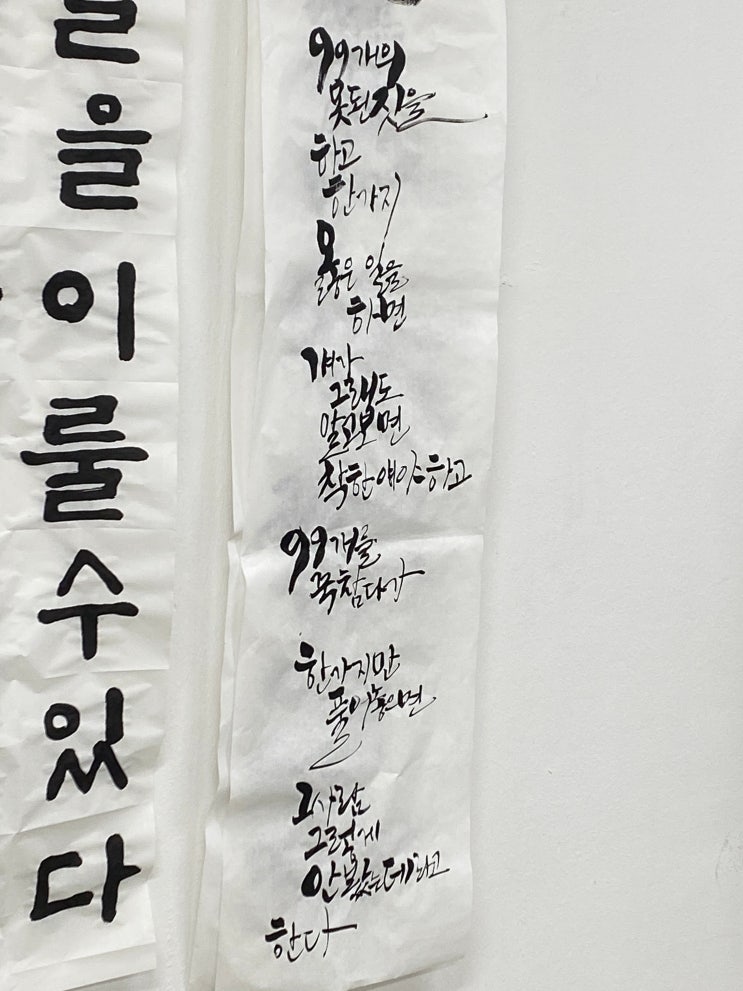 을
이
룰
수
있
다
99개의
못된짓을
하고
한가지
옳은 일을
하면
걔가
그래도
알고보면
착한애야하고
99개를
꾹참다가
한가지만
풀어놓으면
그사람
그렇게
안봤는데라고
한다